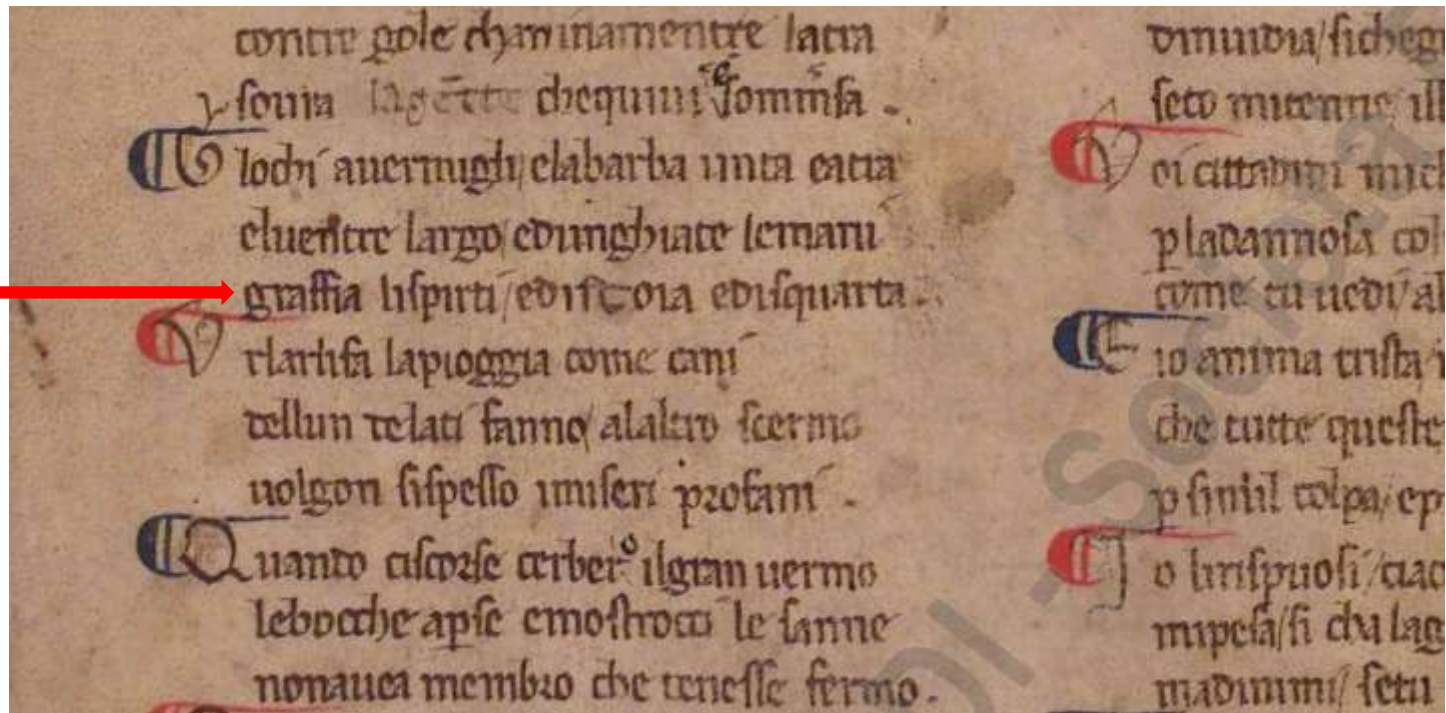 contre gole chaninamentre latra
soura la gẽtte chequiui e sommsa .
Glochi auermigli / elabarba unta eatra
eluentre largo / edunghiate lemani
graffia lispirti / ediscoia edisquarta .
Vrlarlifa lapioggia come cani
dellun delati fanno / alaltro scermo
uolgon sispesso imiseri profani .
Quando ciscorse cerbero ilgran uermo
lebocche apse emostrocci le sanne
nonauea membro che tenesse fermo .
dinuidia / sichegi
seco mitenne ill
Voi cittadini mich
p ladannosa col
come tu uedi / al
E io anima trista /
che tutte queste
p simil colpa / ep
Io lirispuosi / ciac
mipesa / si cha lag
madimmi / setu